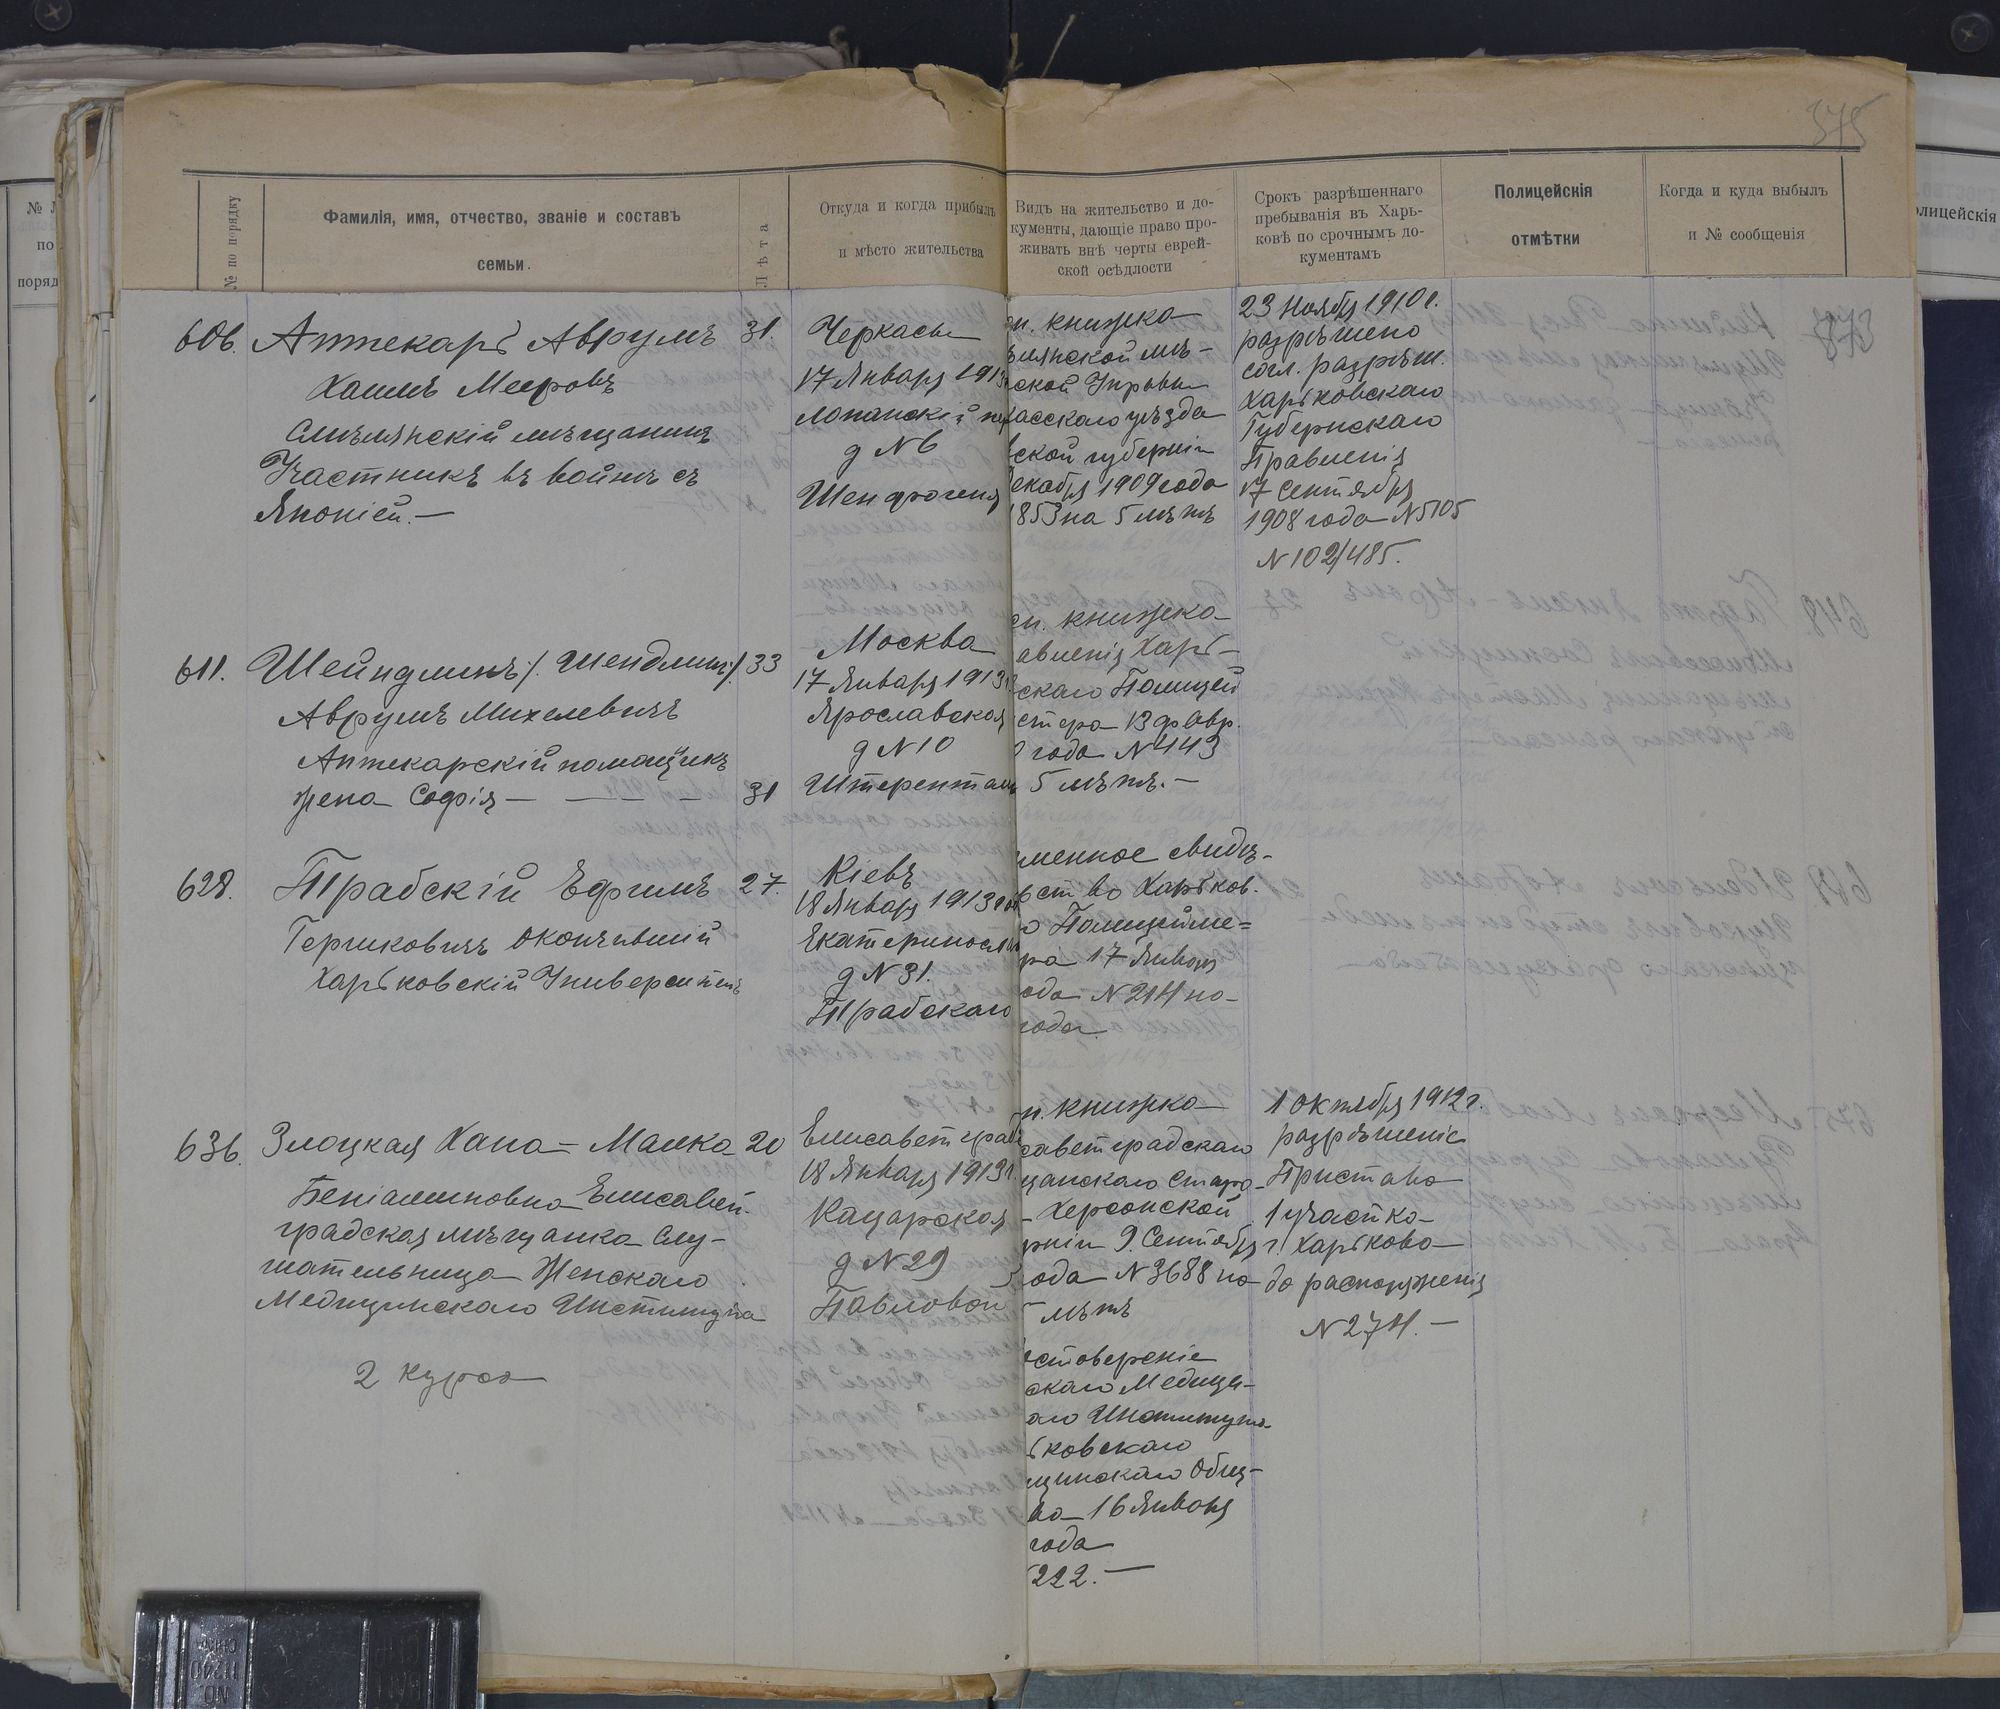 375
№ по порядку
Фамилія, имя, отчество, званіе и составъ
семьи.
Лѣта
Откуда и когда прибылъ
и мѣсто жительства
Видъ на жительство и до-
кументы, дающіе право про-
живать внѣ черты еврей-
ской осѣдлости
Срокъ разрѣшеннаго
пребыванія въ Харь-
ковѣ по срочнымъ до-
кументамъ
Полицейскія
отмѣтки
Когда и куда выбылъ
и № сообщенія
606. Аптекарь Аврумъ 31.
Хаимъ Мееровъ
Смѣлянскій мѣщанинъ
Участникъ въ войнѣ съ
Японіей.—
Черкасы
17 Января 1913
Лопанскій пе
д N 6
п. книжка
ѣлянской мѣ-
ской Управы
касскаго уѣзда
ской губерніи
екабря 1909 года
853 на 5 лѣтъ
23 Ноября 1910 г.
разрѣшено
согл. разрѣш.
Харьковскаго
Губернскаго
Правленія
17 Сентября
1908 года N 5105
N 102/485.
611. Шейндлинъ /. Шендлинъ ./ 33
Аврумъ Михелевичъ
Аптекарскій помощникъ
жена Софія — — — — 31
Москва
17 Января 1913
Ярославская
д N 10
Штеренталь
сп. книжка
авленія Харь-
скаго Полицей
стера 13 февр.
года N 443
5 лѣтъ.—
628. Грабскій Ефимъ 27.
Гершковичъ окончившій
Харьковскій Университетъ
Кіевъ
18 Января 1913 год
Екатеринослав
д N 31.
Грабскаго
менное свидѣ-
ство Харьков.
о Полицеймe=
ра 17 Января
ода N 214 по-
года.
636. Злоцкая Хана-Малка 20
Беніаминовна Елисавет-
градская мѣщанка Слу-
шательница Женскаго
Медицинскаго Института
2 курса
Елисаветград
18 Января 1913 г.
Кацарская
д N 29
Павловой
п. книжка
саветградскаго
щанскаго Старо-
Херсонской
рніи 9. Сентября
ода N 3688 на
лѣтъ
остовереніе
скаго Медици-
аго Института
ьковскаго
ицинскаго Общ-
ва 16 Января
года
222.—
1 Октября 1912 г.
разрѣшеніе
Пристава
1 участка
г. Харькова
до распоряженія
N 274.—